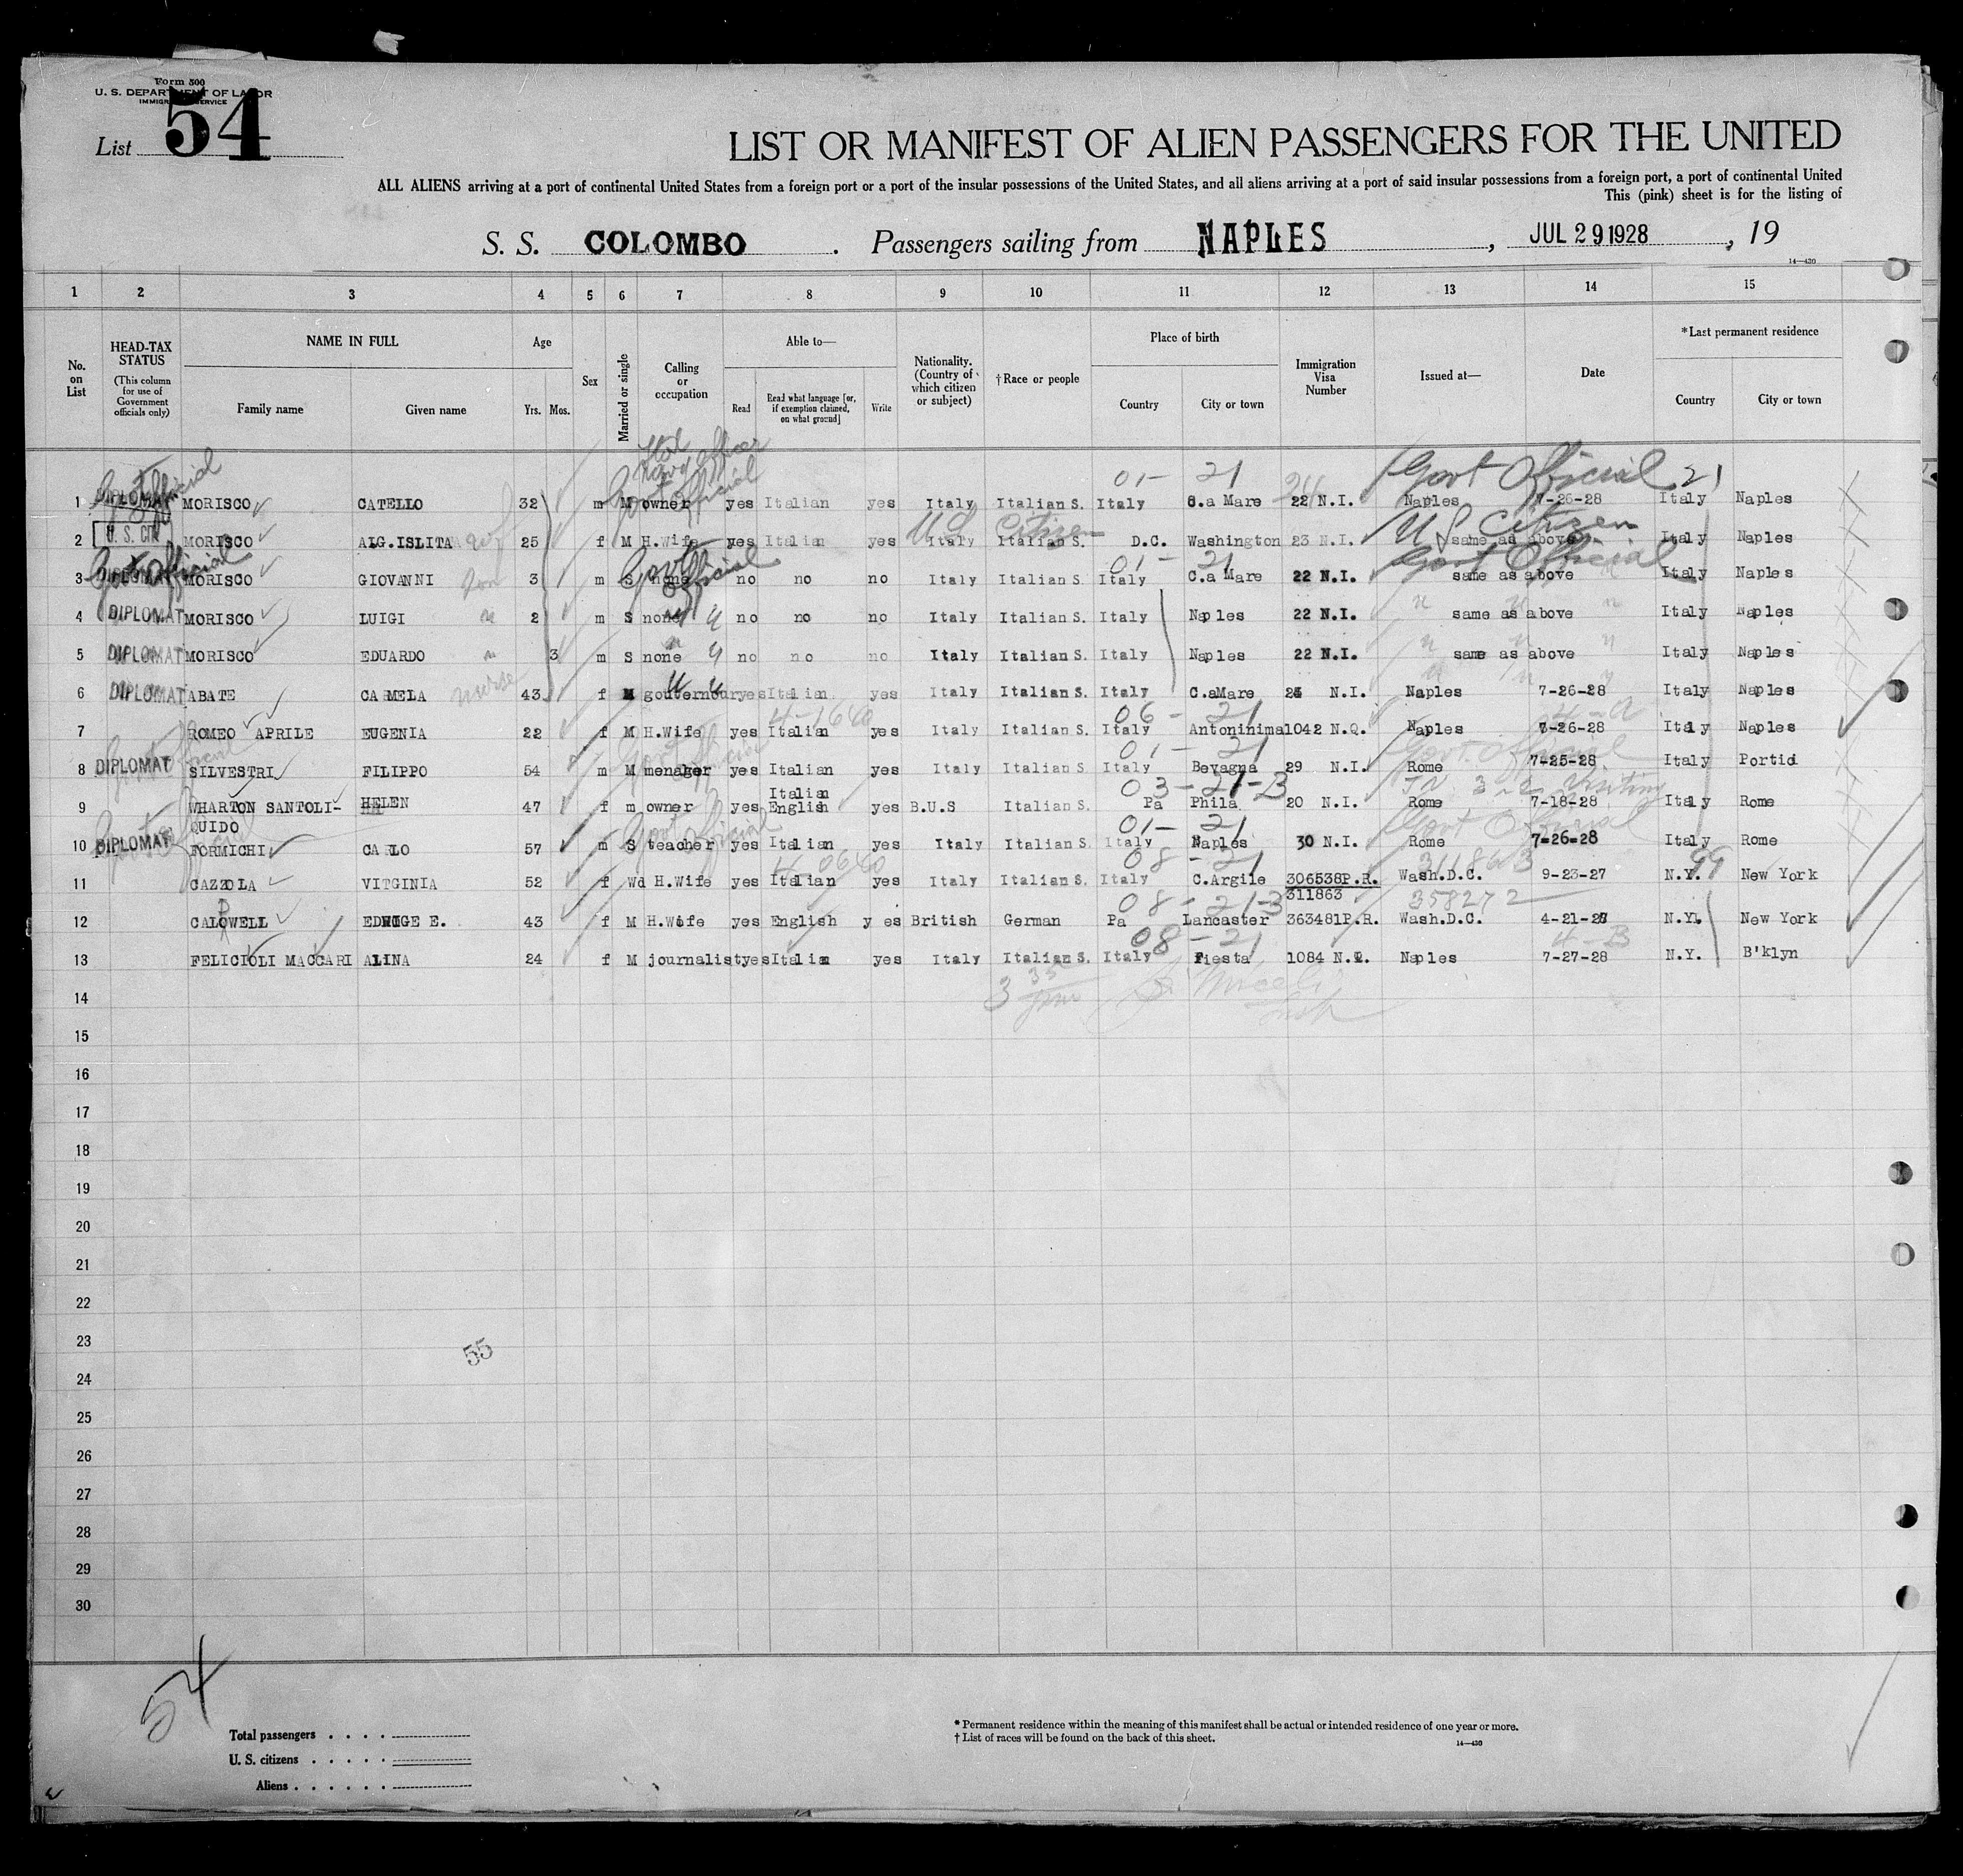 Form 500
U. S. DEPARTMENT OF LABOR
IMMIGRATION SERVICE
List 54
LIST OR MANIFEST OF ALIEN PASSENGERS FOR THE UNITED
ALL ALIENS arriving at a port of continental United States from a foreign port or a port of the insular possessions of the United States, and all aliens arriving at a port of said insular possessions from a foreign port, a port of continental United
This (pink) sheet is for the listing of
S. S. COLOMBO. Passengers sailing from NAPLES, JUL 29 1928, 19
14—430
1 2 3 4 5 6 7 8 9 10 11 12 13 14 15
No. on List HEAD-TAX STATUS (This column for use of Government officials only) NAME IN FULL Family name Given name Age Yrs. Mos. Sex Married or single Calling or occupation Able to— Read Read what language [or, if exemption claimed, on what ground] Write Nationality. (Country of which citizen or subject) † Race or people Place of birth Country City or town Immigration Visa Number Issued at— Date *Last permanent residence Country City or town
Ital Navy officer
Govt Official 01- 21 24 Govt Official 21
1 DIPLOMAT MORISCO CATELLO 32 m M owner yes Italian yes Italy Italian S. Italy C.a Mare 22 N.I. Naples 7-26-28 Italy Naples
US Citizen US Citizen
2 U. S. CIT. MORISCO ALG.ISLITA 25 f M H.Wife yes Italian yes Italy Italian S. D.C. Washington 23 N.I. same as above Italy Naples
Govt Official Govt Official 01- 21 Govt Official
3 DIPLOMAT MORISCO GIOVANNI son 3 m S none no no no Italy Italian S. Italy C.a Mare 22 N.I. same as above Italy Naples
4 DIPLOMAT MORISCO LUIGI 2 m S none no no no Italy Italian S. Italy Naples 22 N.I. same as above Italy Naples
5 DIPLOMAT MORISCO EDUARDO 3 m S none no no no Italy Italian S. Italy Naples 22 N.I. same as above Italy Naples
6 DIPLOMAT ABATE CARMELA nurse 43 f M gouternour yes Italian yes Italy Italian S. Italy C.aMare 24 N.I. Naples 7-26-28 Italy Naples
06- 21
7 ROMEO APRILE EUGENIA 22 f M H.Wife yes Italian yes Italy Italian S. Italy Antoninima 1042 N.Q. Naples 7-26-28 Italy Naples
Govt Official 01- 21 Govt Official
8 DIPLOMAT SILVESTRI FILIPPO 54 m M menager yes Italian yes Italy Italian S. Italy Bevagna 29 N.I. Rome 7-25-28 Italy Portici
03-21-B 3-2 Visiting
9 WHARTON SANTOLI- QUIDO HELEN 47 f m owner yes Italian English yes B.U.S Italian S. Pa Phila. 20 N.I. Rome 7-18-28 Italy Rome
Govt Official 01- 21 Govt Official
10 DIPLOMAT FORMICHI CARLO 57 m S teacher yes Italian yes Italy Italian S. Italy Naples 30 N.I. Rome 7-26-28 Italy Rome
08-21 311863 99
11 CAZZOLA VITGINIA 52 f Wd H.Wife yes Italian yes Italy Italian S. Italy C.Argile 306538P.R. 311863 Wash.D.C. 9-23-27 N.Y. New York
08-21-3 358272
12 CALDWELL EDWIGE E. 43 f M H.Wife yes English yes British German Pa Lancaster 363481P.R. Wash.D.C. 4-21-28 N.Y. New York
08-21 4-B
13 FELICIOLI MACCARI ALINA 24 f M journalist yes Italian yes Italy Italian S. Italy Fiesta 1084 N.Q. Naples 7-27-28 N.Y. B'klyn
14
15
16
17
18
19
20
21
22
23
55
24
25
26
27
28
29
30
54
Total passengers
U. S. citizens
Aliens
* Permanent residence within the meaning of this manifest shall be actual or intended residence of one year or more.
† List of races will be found on the back of this sheet.
14—430